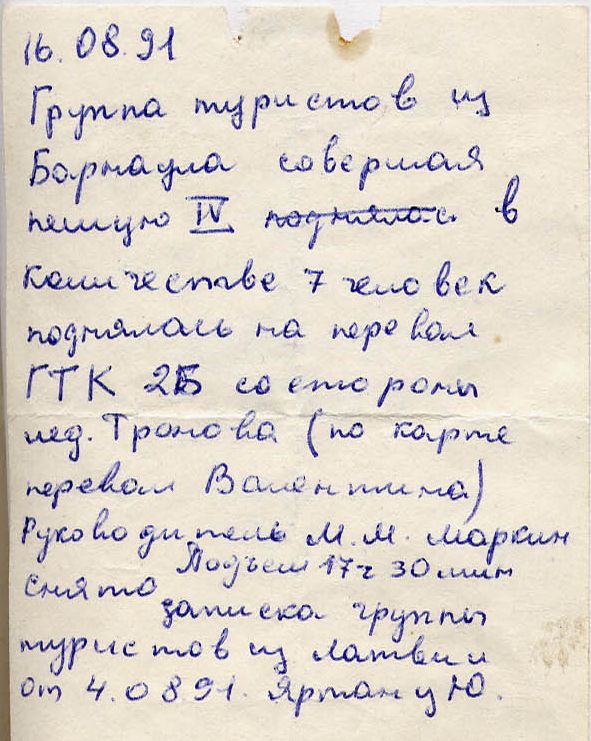 16.08.91
Группа туристов из
Барнаула совершая
пешую IV поднялась в
количестве 7 человек
поднялась на перевал
ГТК 2Б со стороны
лед. Тронова (по карте
перевал Валентина)
Руководитель М.М. Маркин
Подъем 17ч 30 мин
Снято
записка группы
туристов из Латвии
от 4.08.91.